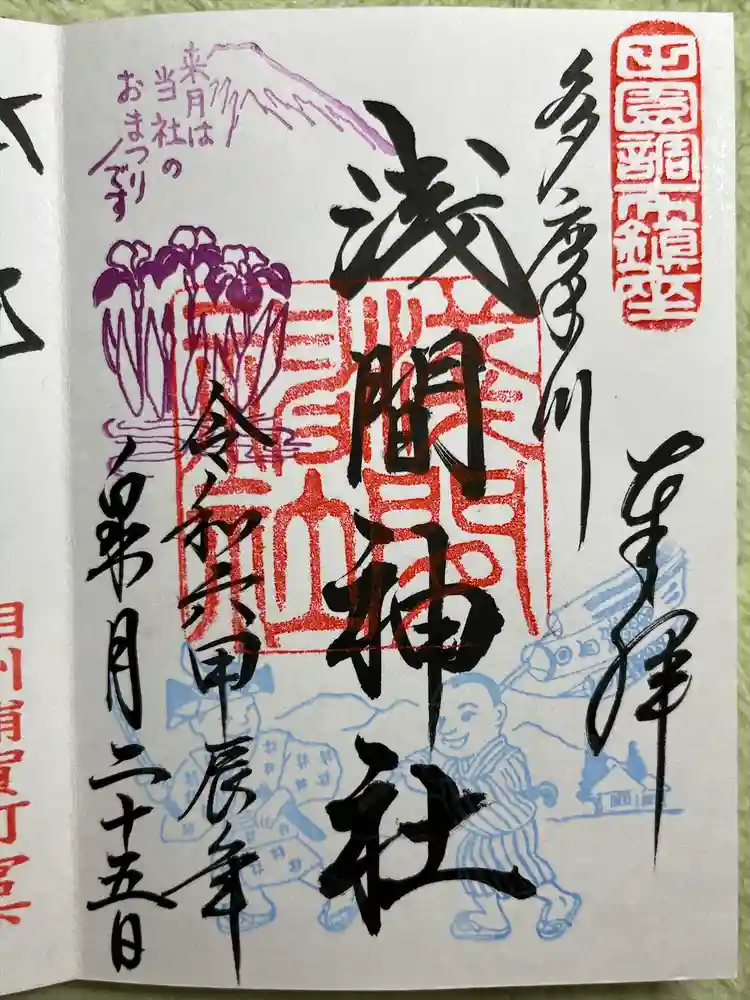 田園調布鎮座
奉拝
多摩川
浅間神社
令和六甲辰年
皐月二十五日
来月は
当社の
おまつり
です
浦賀町